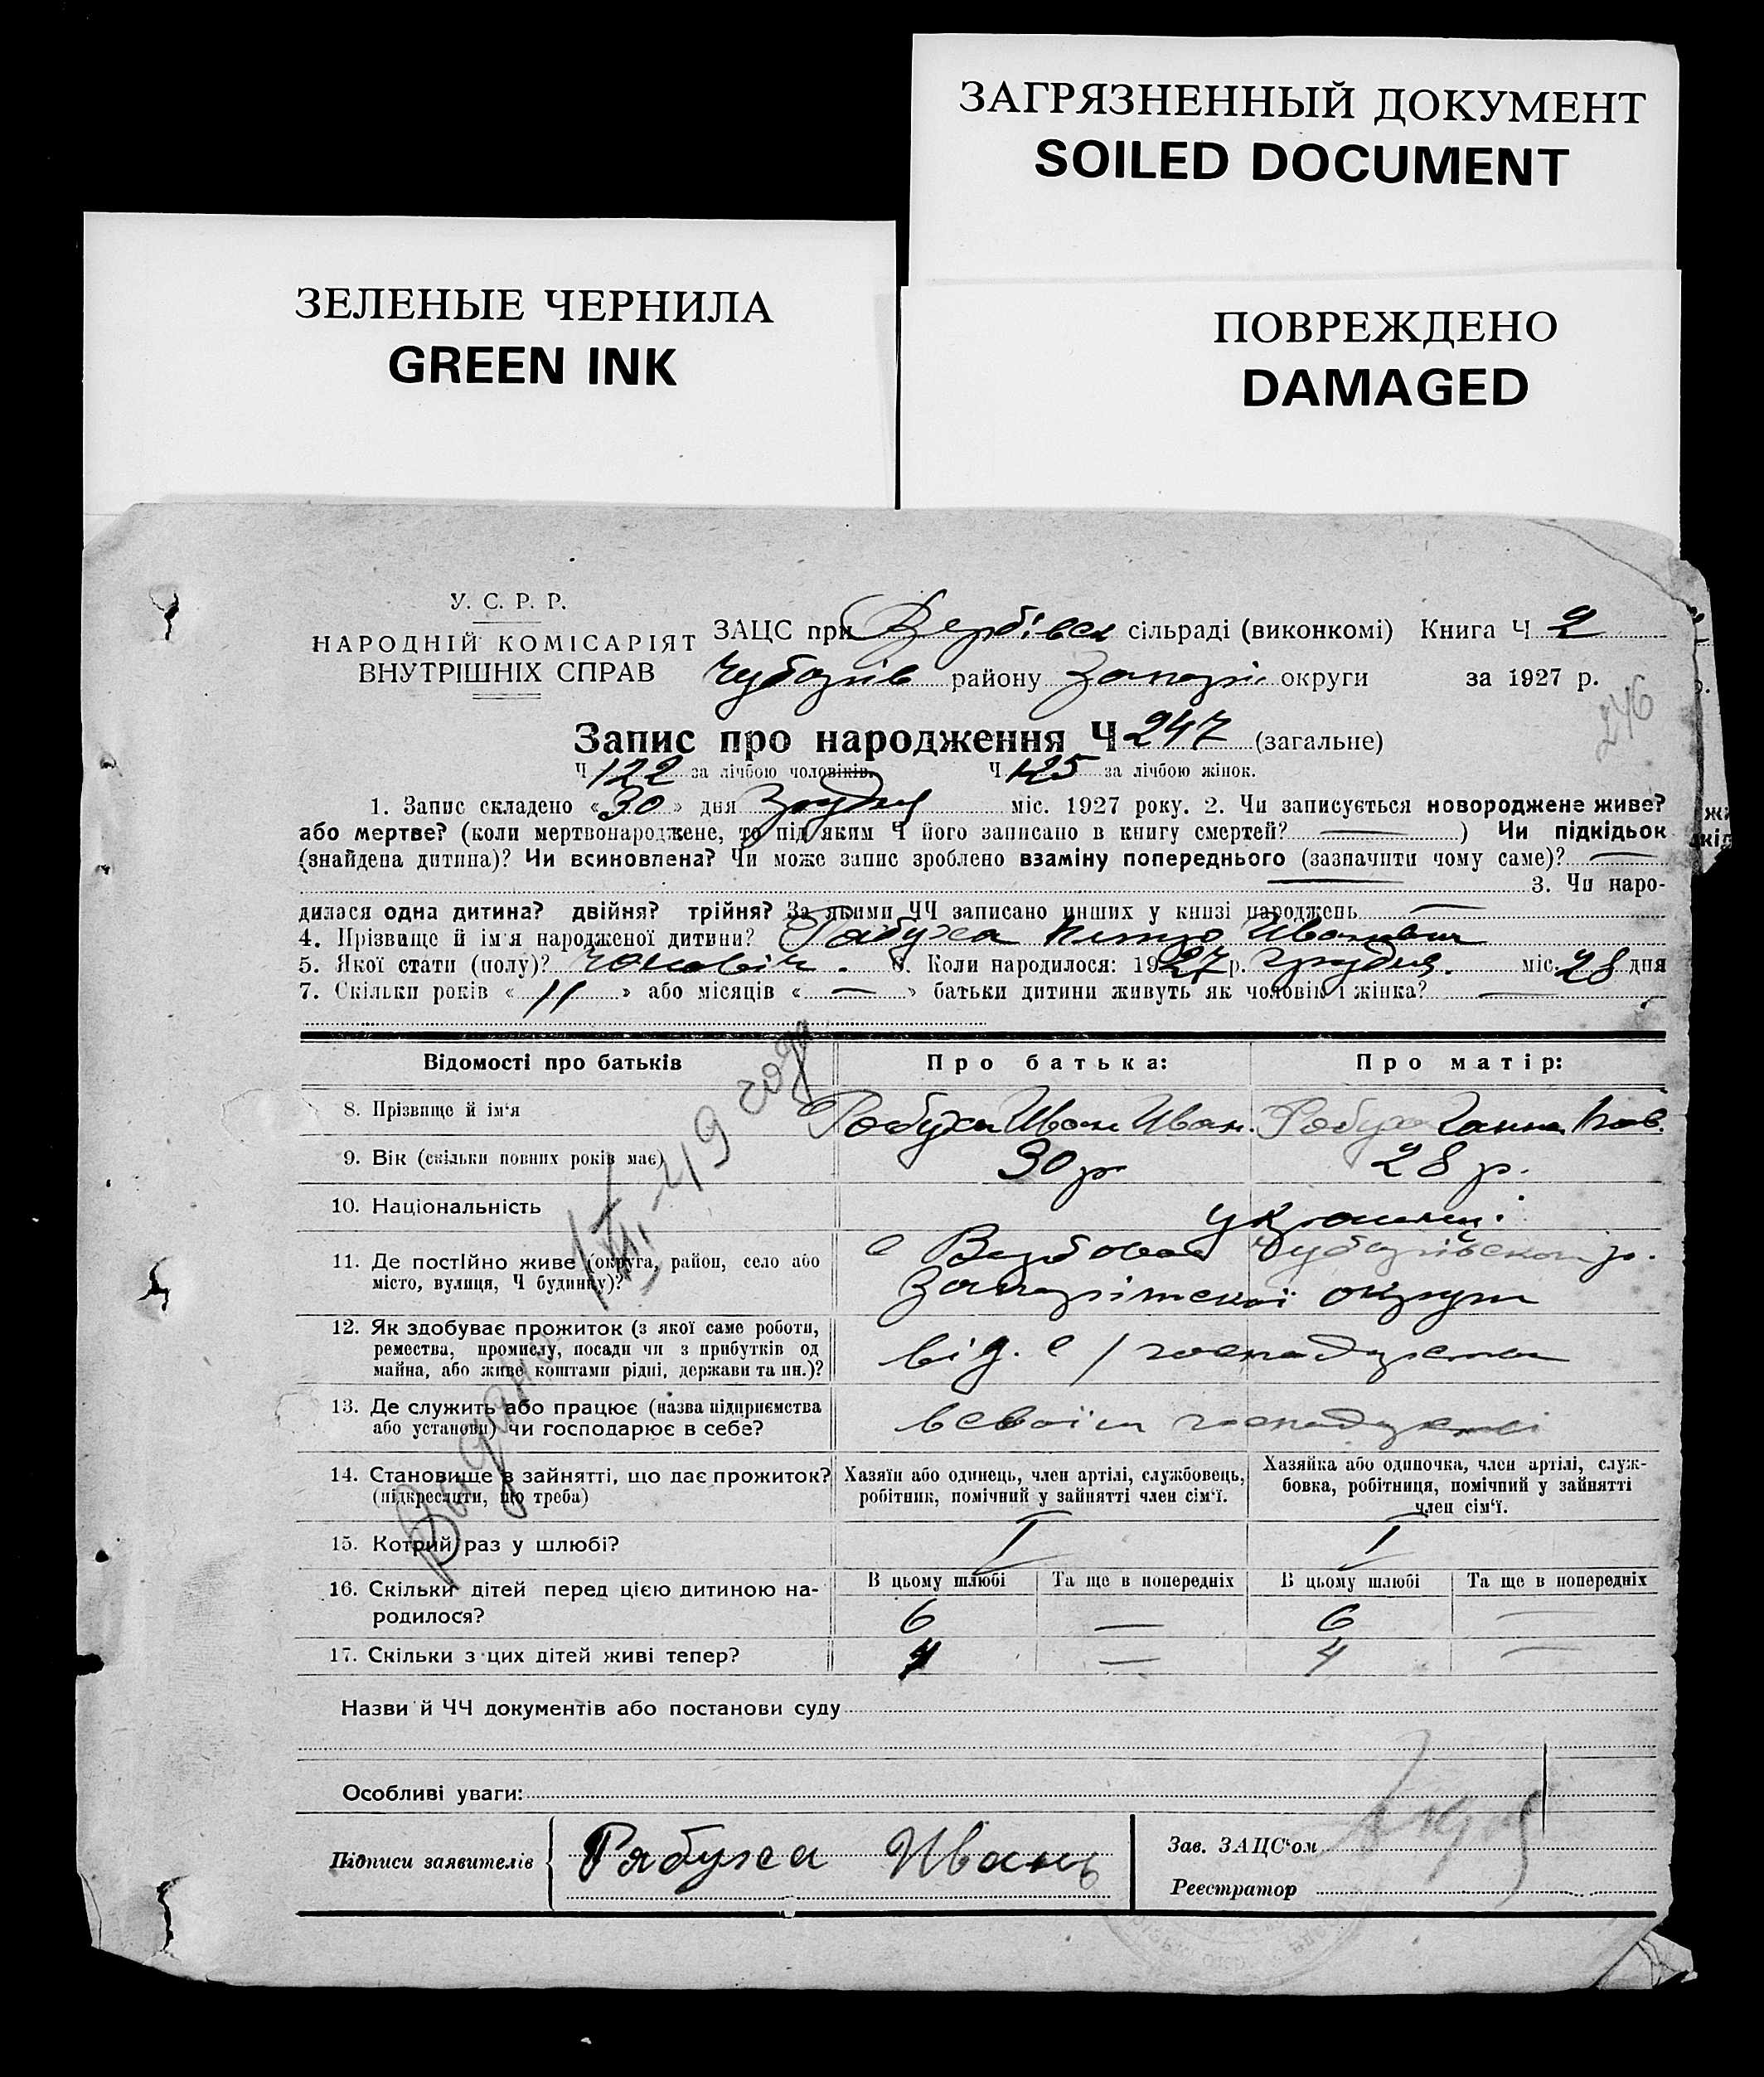 ЗАГРЯЗНЕННЫЙ ДОКУМЕНТ
SOILED DOCUMENT
ЗЕЛЕНЫЕ ЧЕРНИЛА
GREEN INK
ПОВРЕЖДЕНО
DAMAGED
У. С. Р. Р.
НАРОДНІЙ КОМІСАРІЯТ
ВНУТРІШНІХ СПРАВ
ЗАЦС при Вербівск сільраді (виконкомі) Книга Ч 2
Чубарів району Запоріж округи за 1927 р.
246
Запис про народження Ч 247 (загальне)
Ч 122 за лічбою чоловіків. Ч 125 за лічбою жінок.
1. Запис складено «30» дня Грудня міс. 1927 року. 2. Чи записується новороджене живе?
або мертве? (коли мертвонароджене, то під яким Ч його записано в книгу смертей? — ) Чи підкідьок
(знайдена дитина)? Чи всиновлена? Чи може запис зроблено взаміну попереднього (зазначити чому саме)? —
— 3. Чи наро-
дилася одна дитина? двійня? трійня? За якими ЧЧ записано инших у книзі народжень —
4. Прізвище й ім'я народженої дитини? Рабуха Иванович
5. Якої стати (полу)? чоловіч. 6. Коли народилося: 1927 р. грудня. міс. 28 дня
7. Скільки років «11» або місяців «—» батьки дитини живуть як чоловік і жінка? —
Відомості про батьків Про батька: Про матір:
8. Прізвище й ім'я Рабуха Иван Иван. Рабуха Ганна Пав.
9. Вік (скільки повних років має) 30 р 28 р.
10. Національність україн.
11. Де постійно живе (округа, район, село або
місто, вулиця, Ч будинку)?
с Вербова Чубарівського р.
Запоріжської округи
12. Як здобуває прожиток (з якої саме роботи,
ремества, промислу, посади чи з прибутків од
майна, або живе коштами рідні, держави та ин.)?
від. с / господарства
13. Де служить або працює (назва підприємства
або установи) чи господарює в себе?
в своїм господарстві
14. Становище в зайнятті, що дає прожиток?
(підкреслити, що треба)
Хазяїн або одинець, член артілі, службовець,
робітник, помічний у зайнятті член сім'ї.
Хазяйка або одиночка, член артілі, служ-
бовка, робітниця, помічний у зайнятті
член сім'ї.
15. Котрий раз у шлюбі? I I
16. Скільки дітей перед цією дитиною на-
родилося?
В цьому шлюбі Та ще в попередніх В цьому шлюбі Та ще в попередніх
6 — 6 —
17. Скільки з цих дітей живі тепер? 4 — 4 —
Назви й ЧЧ документів або постанови суду
Особливі уваги:
Підписи заявителів Рябуха Иванъ
Зав. ЗАЦС'ом
Реєстратор